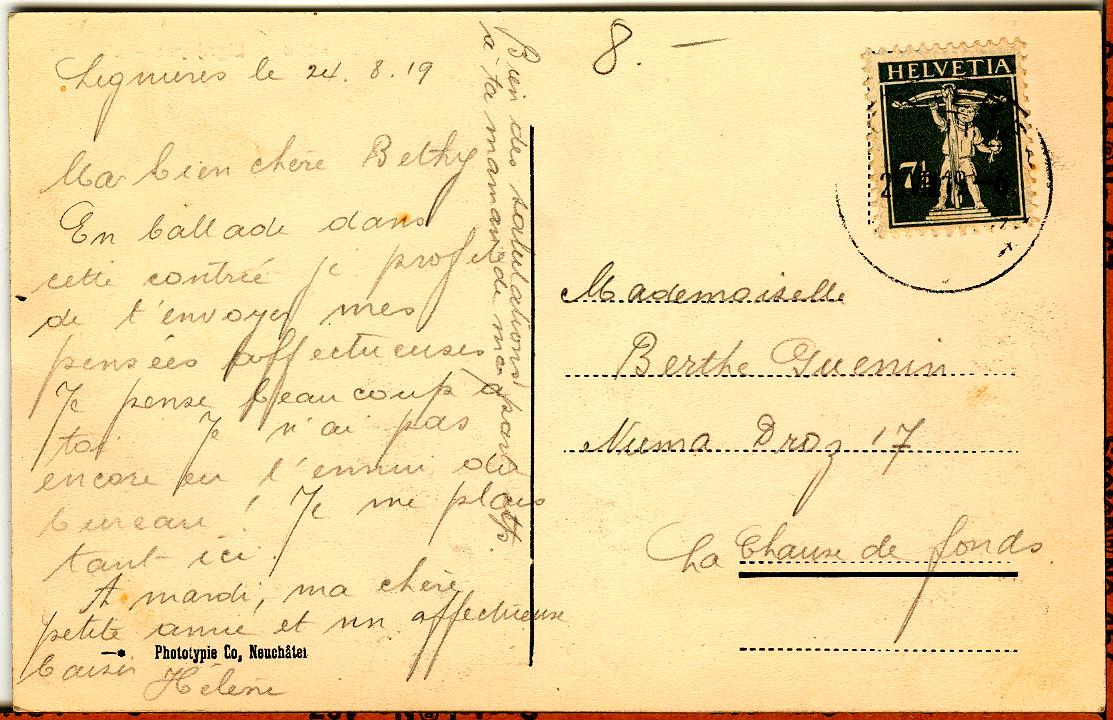 Lignières le 24. 8. 19
Ma bien chère Bethy
En ballade dans
cette contrée je profite
de t'envoyer mes
pensées affectueuses
Je pense beaucoup à
toi. Je n'ai pas
encore eu l'ennui du
bureau! Je me plais
tant ici.
A mardi, ma chère
petite amie et un affectueuse
baiser
Hélène
Bien des salutations
à ta maman de ma part
Phototypie Co, Neuchâtel
8. —
HELVETIA
7½
Mademoiselle
Berthe Guenin
Numa Droz 17
La Chaux de fonds